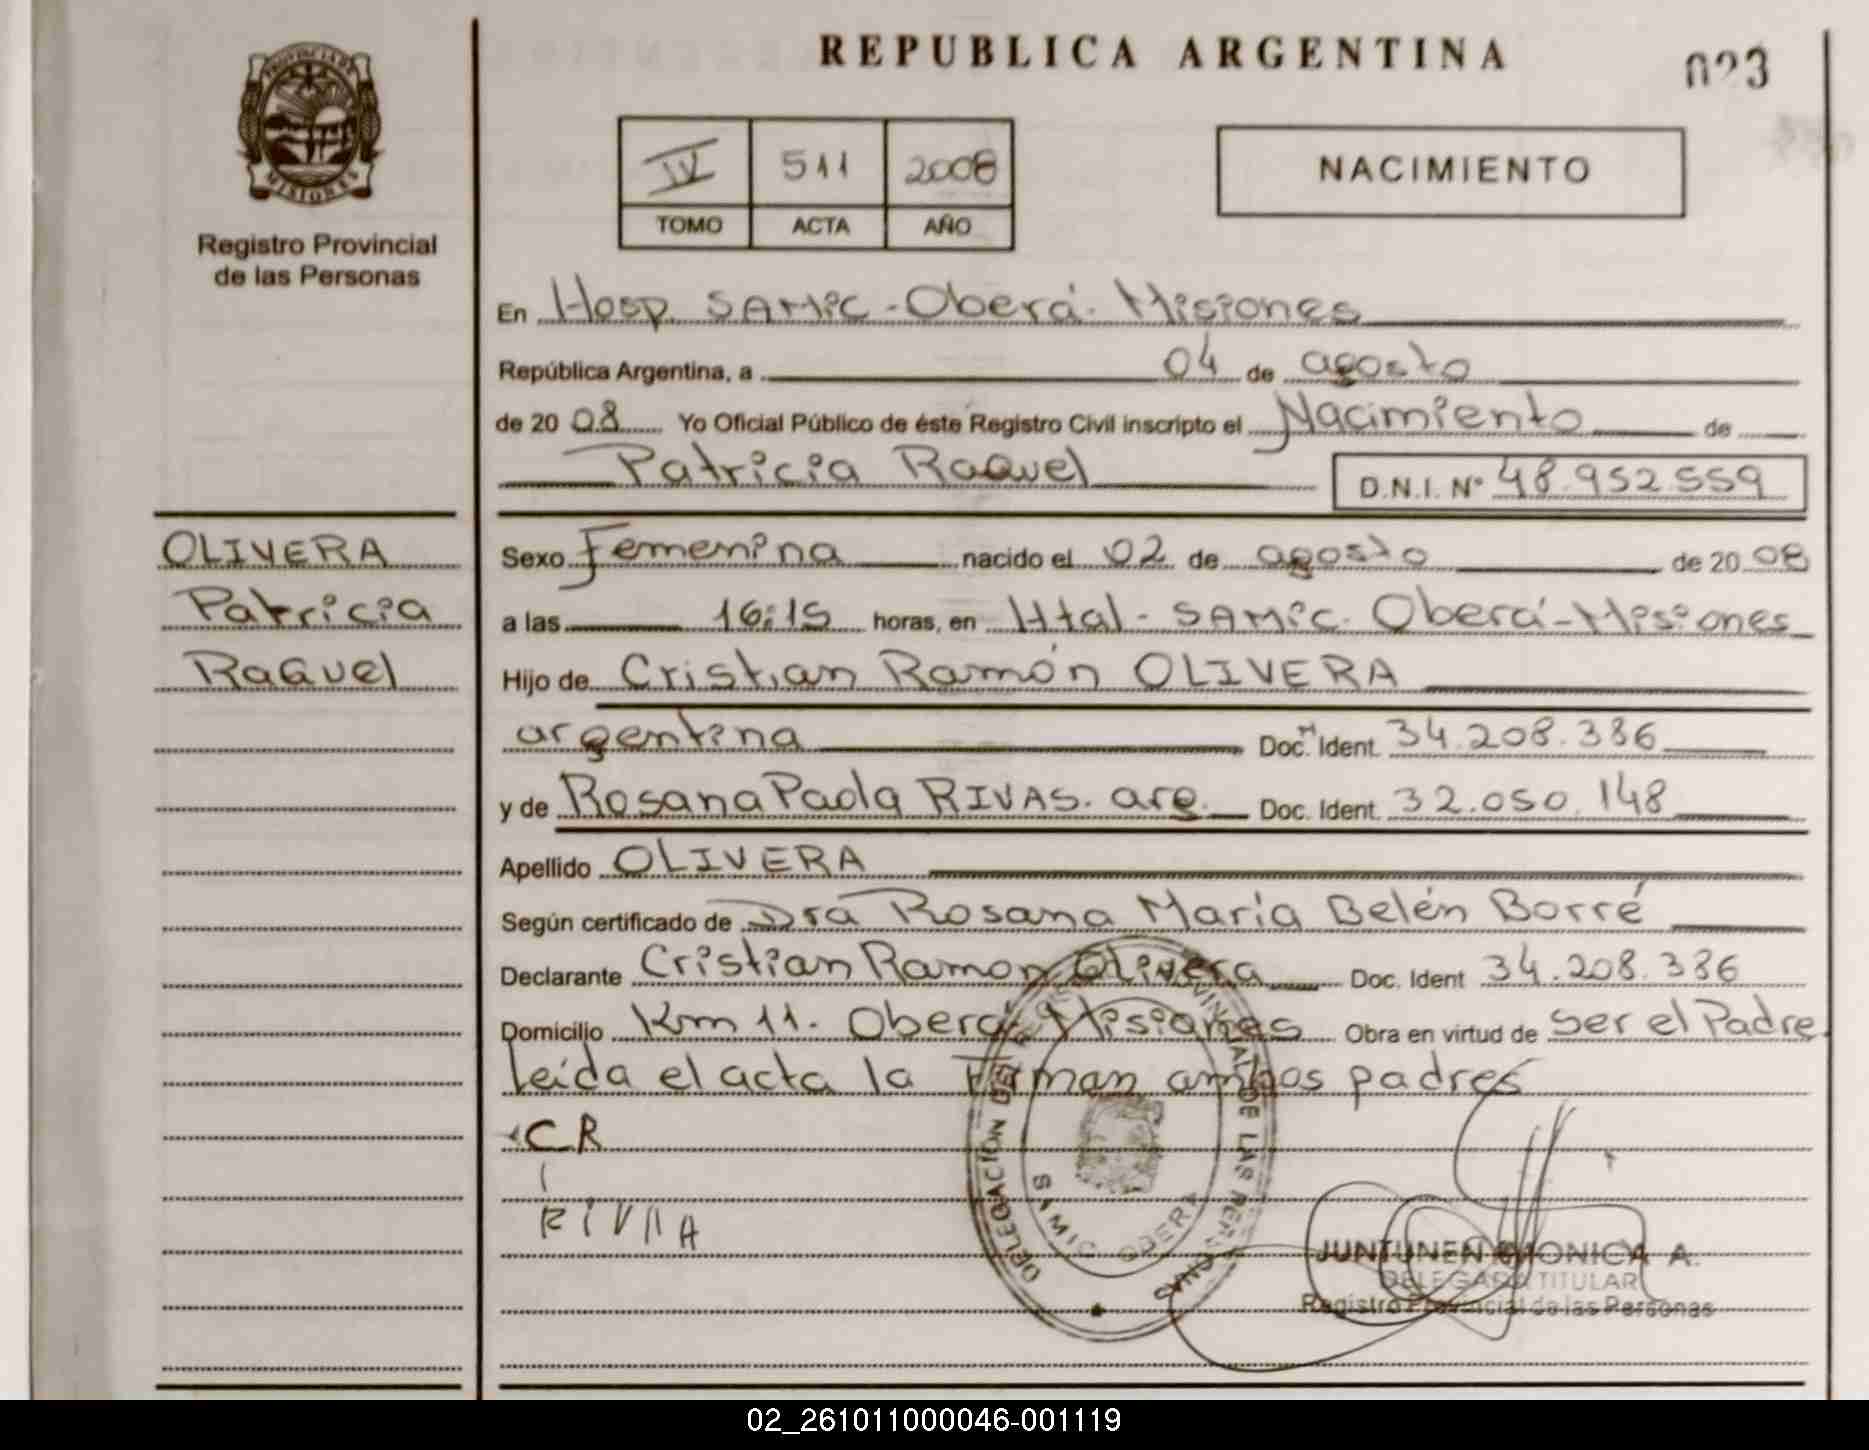 REPUBLICA ARGENTINA
023
PROVINCIA DE MISIONES
Registro Provincial
de las Personas
IV 511 2008
TOMO ACTA AÑO
NACIMIENTO
En Hosp. SAMiC - Oberá - Misiones
República Argentina, a 04 de agosto
de 20 08 Yo Oficial Público de éste Registro Civil inscripto el Nacimiento de
Patricia Raquel D.N.I. Nº 48.952.559
OLIVERA
Patricia
Raquel
Sexo Femenina nacido el 02 de agosto de 20 08
a las 16:15 horas, en Htal - SAMiC. Oberá - Misiones
Hijo de Cristian Ramón OLIVERA
argentina Doc. Ident. 34.208.386
y de Rosana Paola RIVAS. arg. Doc. Ident. 32.050.148
Apellido OLIVERA
Según certificado de Dra Rosana María Belén Borré
Declarante Cristian Ramon Olivera Doc. Ident 34.208.386
Domicilio Km 11. Oberá Misiones Obra en virtud de ser el Padre
Leída el acta la Firman ambos padres
CR
DELEGACION DEL REGISTRO PROVINCIAL DE LAS PERSONAS
SAMIC OBERA
JUNTUNEN MONICA A.
DELEGADA TITULAR
Registro Provincial de las Personas
02_261011000046-001119